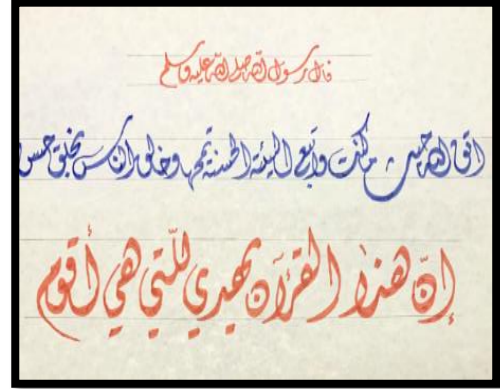 قال رسول الله صلى الله عليه وسلم
اتق الله حيث ما كنت واتبع السيئة الحسنة تمحها وخالق الناس بخلق حسن
إنّ هذا القرآن يهدي للّتي هي أقوم